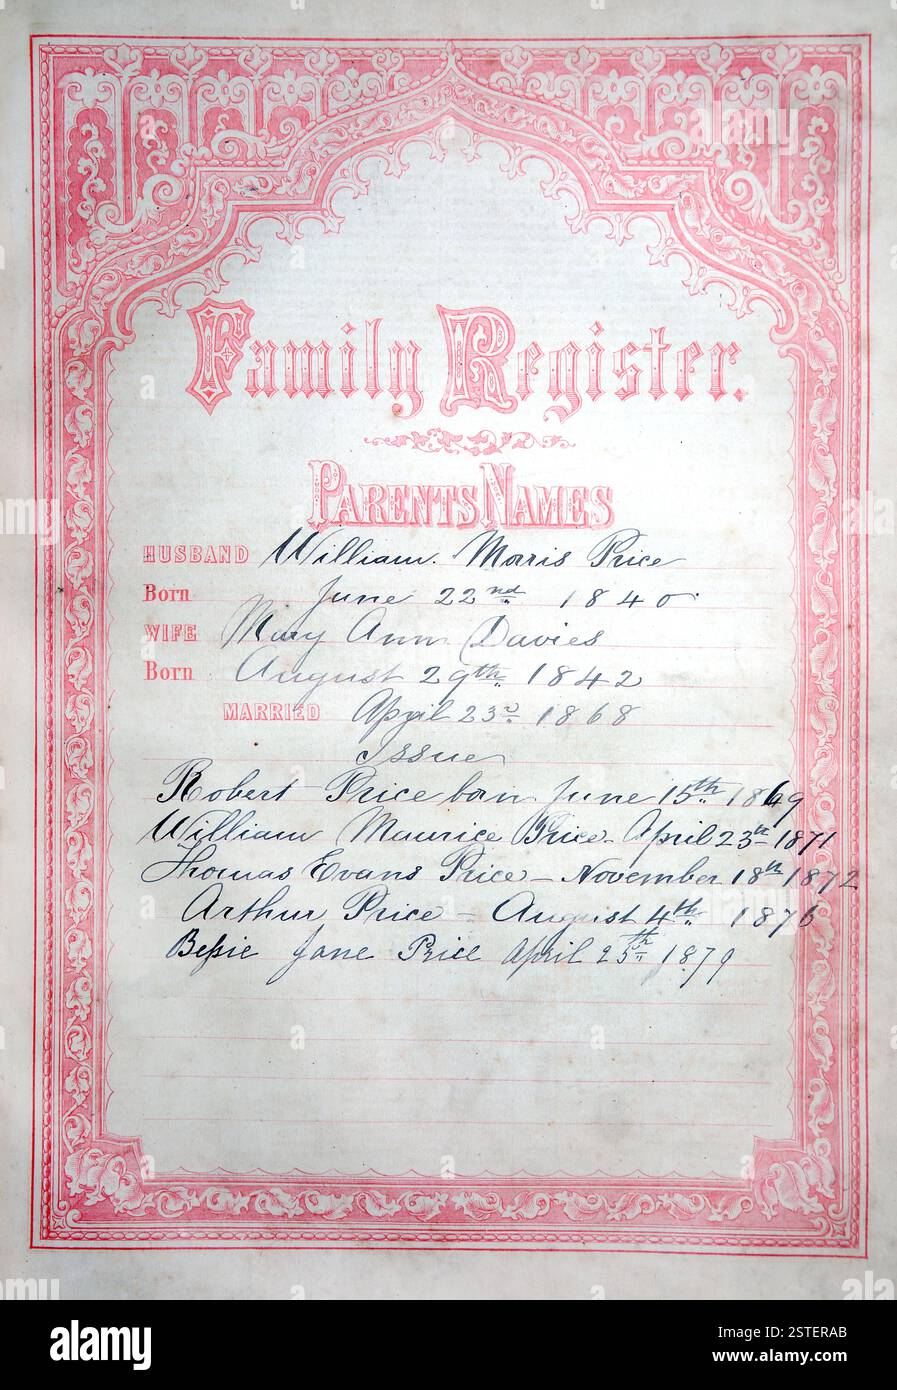 Family Register.
PARENTS NAMES
HUSBAND William. Morris Price
Born June 22nd 1840.
WIFE Mary Ann Davies
Born August 29th 1842
MARRIED April 23d 1868
Issue
Robert Price born June 15th 1869
William Maurice Price. April 23rd 1871
Thomas Evans Price – November 18th 1872
Arthur Price – August 4th 1876
Bessie Jane Price April 25th 1879
alamy
Image ID: 2STERAB
www.alamy.com